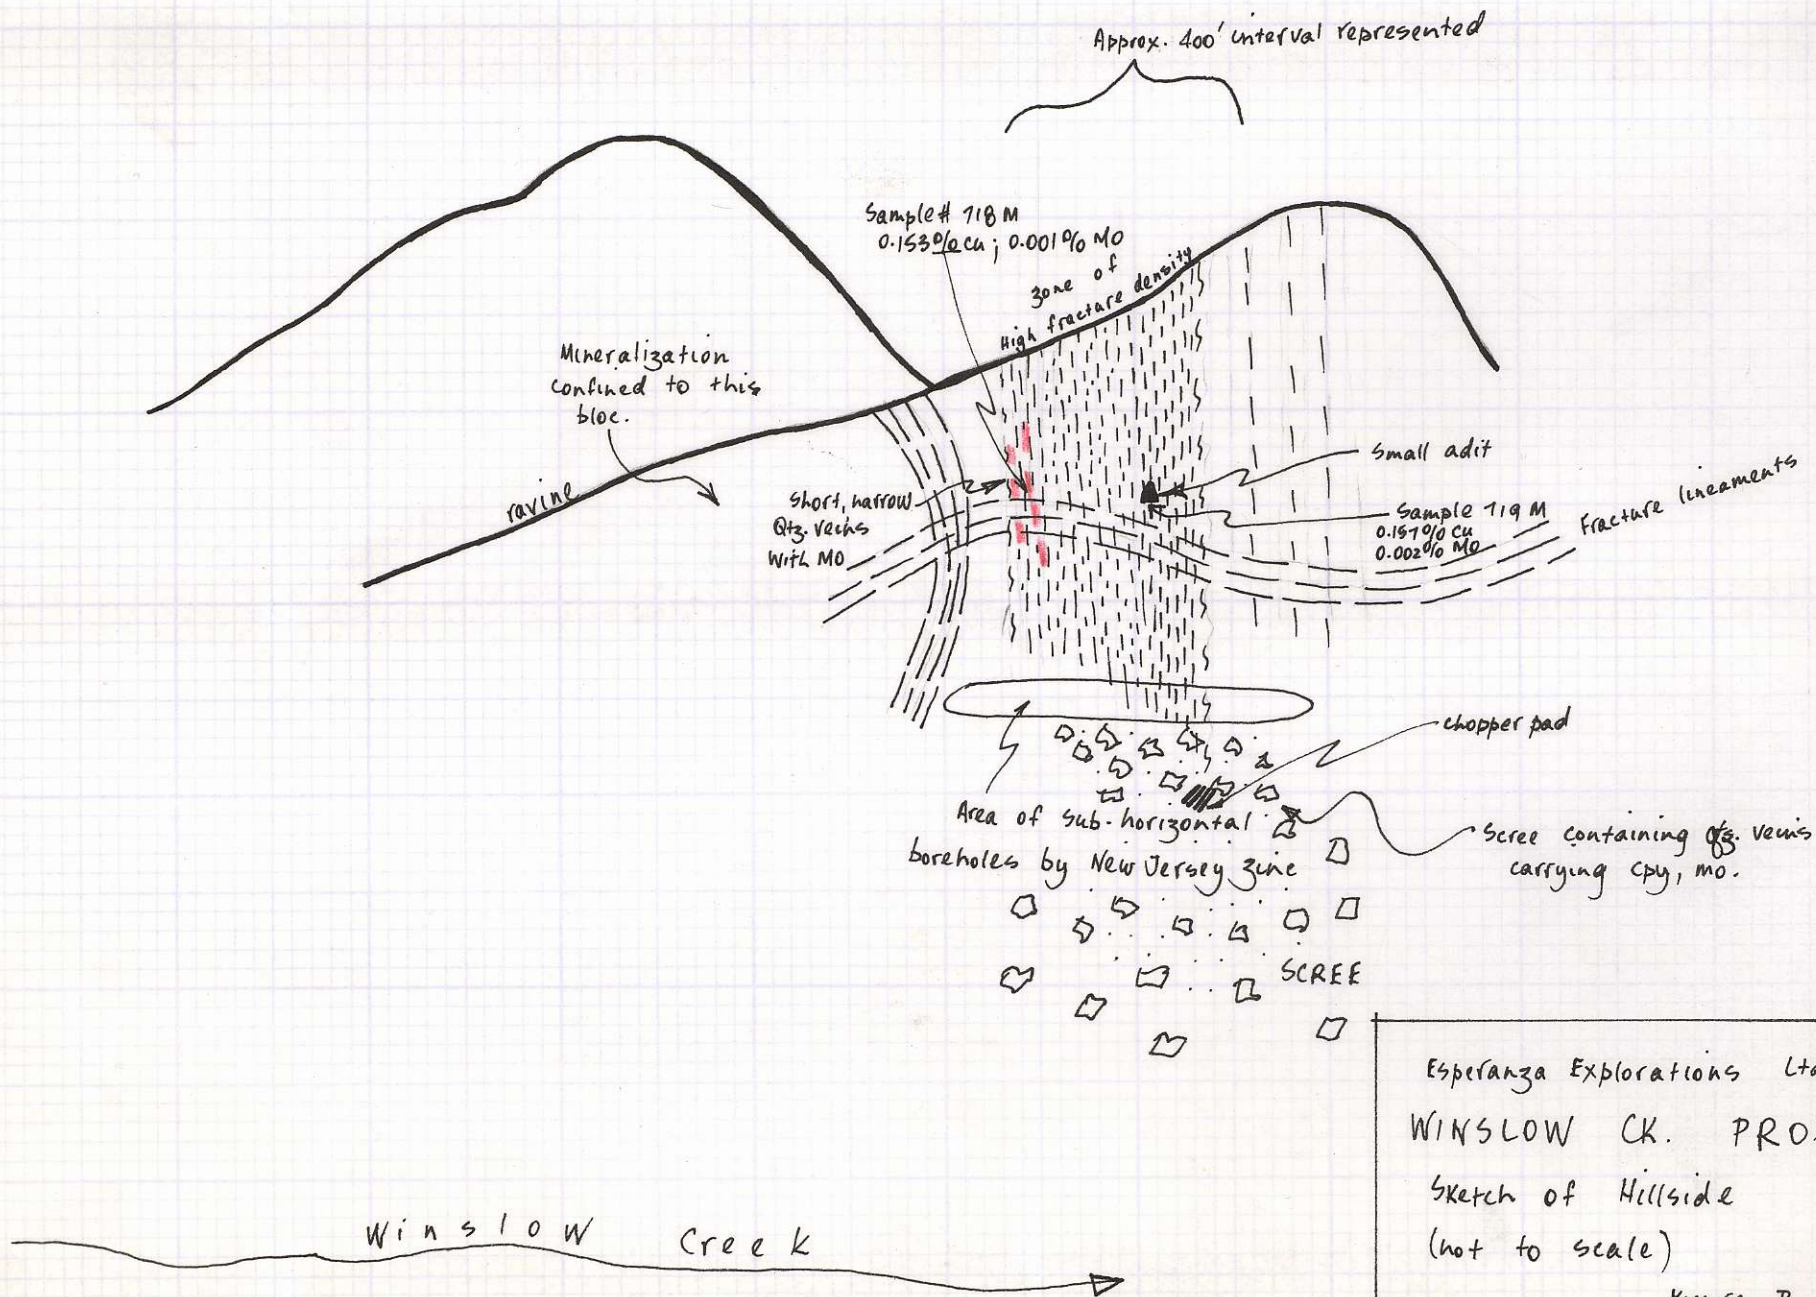 Approx. 400' interval represented
Sample# 718 M
0.153% Cu ; 0.001% MO
zone of
High fracture density
Mineralization
confined to this
bloc.
ravine
Short, narrow
Qtz. veins
With MO
Small adit
Sample 719 M
0.157% Cu
0.002% Mo
Fracture lineaments
chopper pad
Area of sub-horizontal
boreholes by New Jersey zinc
Scree containing qtz. veins
carrying cpy, mo.
SCREE
Esperanza Explorations
WINSLOW CK.
Sketch of Hillside
(not to scale)
Winslow Creek